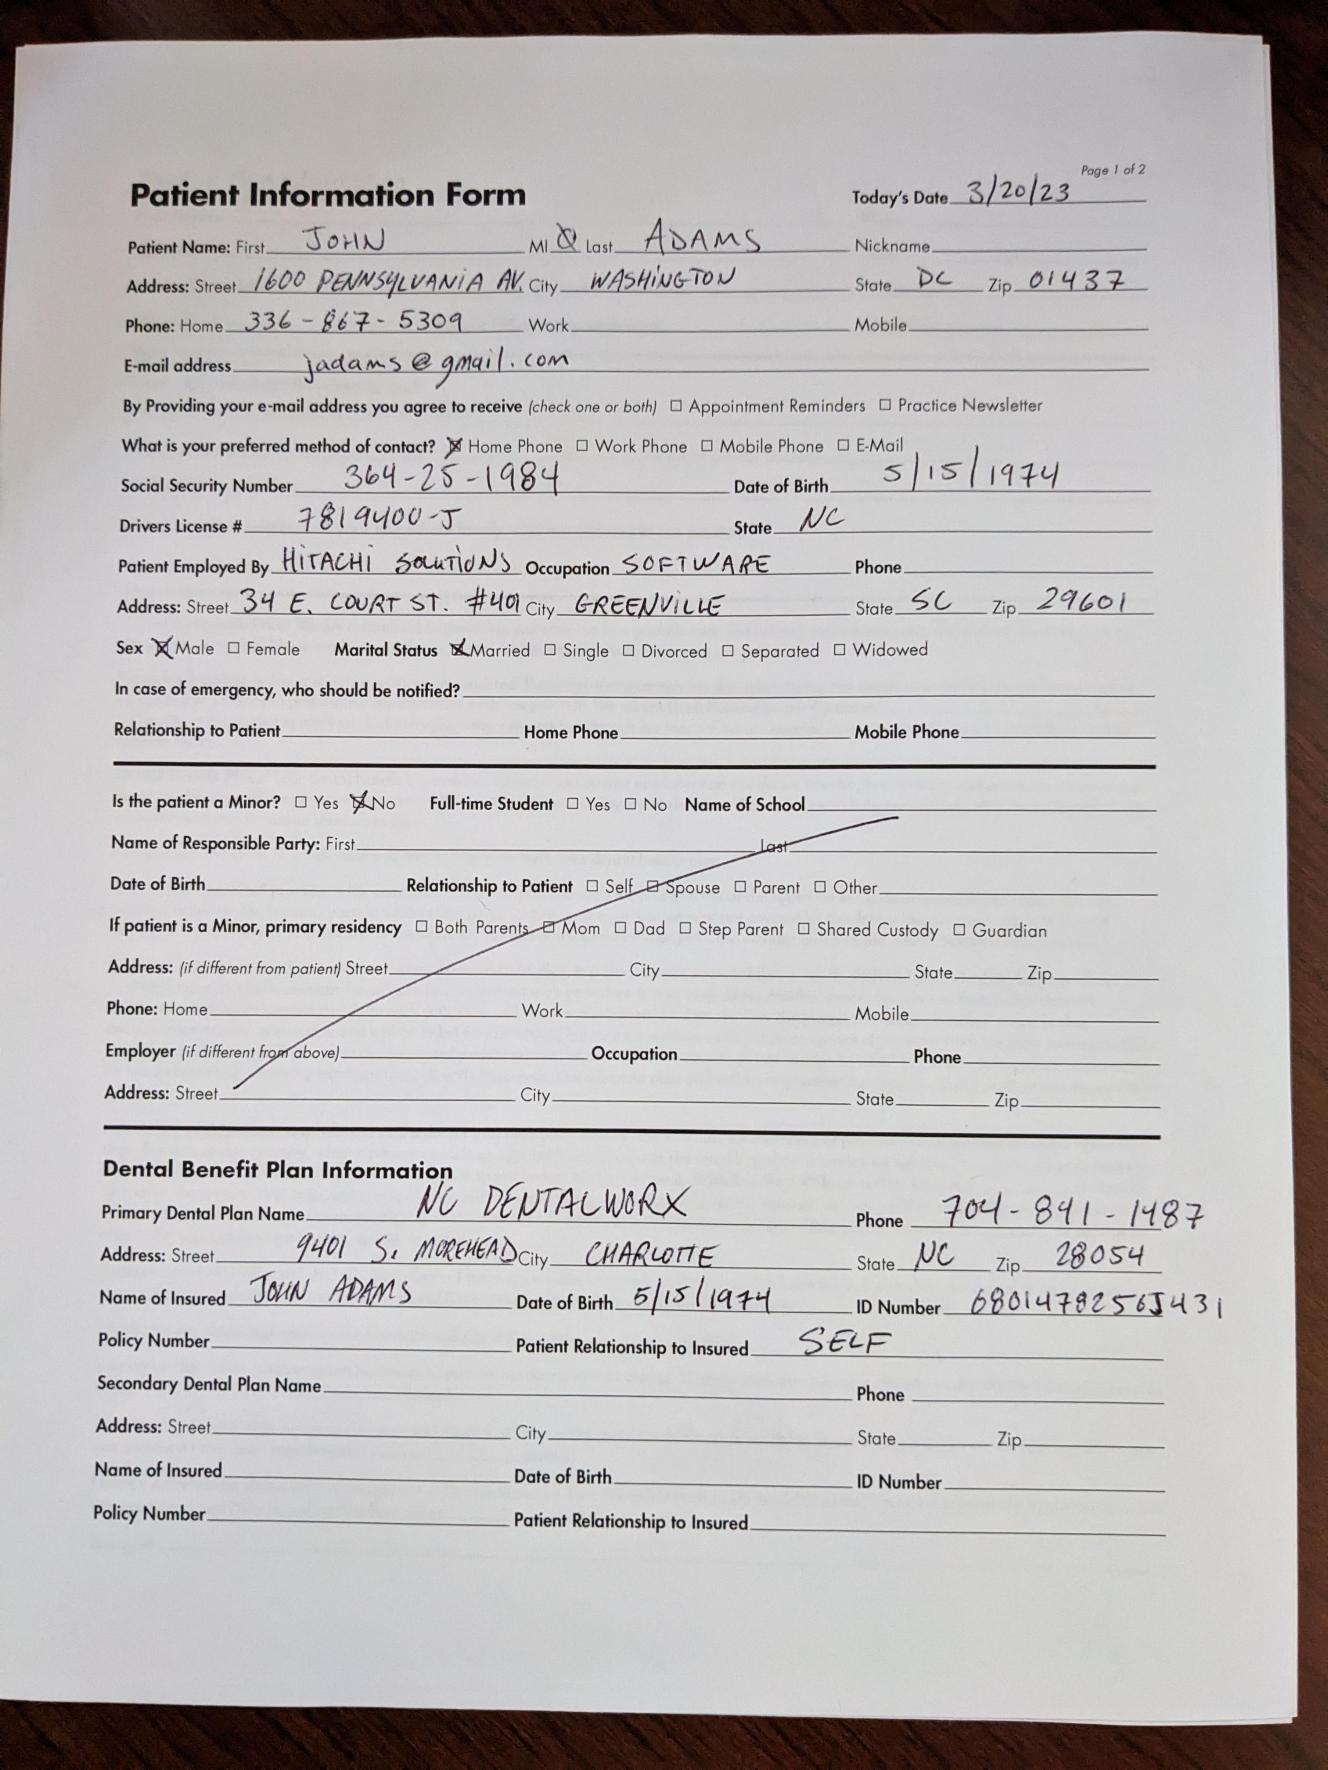 Page 1 of 2
Patient Information Form Today's Date 3/20/23
Patient Name: First JOHN MI Last ADAMS Nickname
Address: Street 1600 PENNSYLVANIA AV. City WASHINGTON State DC Zip 01437
Phone: Home 336-867-5309 Work Mobile
E-mail address jadams@gmail.com
By Providing your e-mail address you agree to receive (check one or both) ☐ Appointment Reminders ☐ Practice Newsletter
What is your preferred method of contact? ☒ Home Phone ☐ Work Phone ☐ Mobile Phone ☐ E-Mail
Social Security Number 364-25-1984 Date of Birth 5/15/1974
Drivers License # 7819400-J State NC
Patient Employed By HITACHI SOLUTIONS Occupation SOFTWARE Phone
Address: Street 34 E. COURT ST. #401 City GREENVILLE State SC Zip 29601
Sex ☒ Male ☐ Female Marital Status ☒ Married ☐ Single ☐ Divorced ☐ Separated ☐ Widowed
In case of emergency, who should be notified?
Relationship to Patient Home Phone Mobile Phone
Is the patient a Minor? ☐ Yes ☒ No Full-time Student ☐ Yes ☐ No Name of School
Name of Responsible Party: First Last
Date of Birth Relationship to Patient ☐ Self ☐ Spouse ☐ Parent ☐ Other
If patient is a Minor, primary residency ☐ Both Parents ☐ Mom ☐ Dad ☐ Step Parent ☐ Shared Custody ☐ Guardian
Address: (if different from patient) Street City State Zip
Phone: Home Work Mobile
Employer (if different from above) Occupation Phone
Address: Street City State Zip
Dental Benefit Plan Information
Primary Dental Plan Name NC DENTALWORX Phone 704-841-1487
Address: Street 9401 S. MOREHEAD City CHARLOTTE State NC Zip 28054
Name of Insured JOHN ADAMS Date of Birth 5/15/1974 ID Number 68014782565431
Policy Number Patient Relationship to Insured SELF
Secondary Dental Plan Name Phone
Address: Street City State Zip
Name of Insured Date of Birth ID Number
Policy Number Patient Relationship to Insured